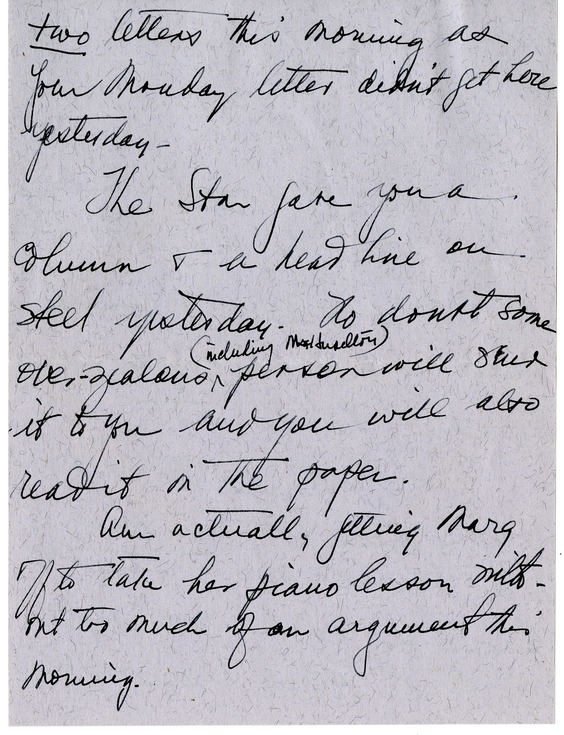 two letters this morning as
your Monday letter didn't get here
yesterday –
The Star gave you a
column & a head line on
steel yesterday. No doubt some
(including
over-zealous ‸ person will send
it to you and you will also
read it in the paper.
Am actually getting Marg
off to take her piano lesson with-
out too much of an argument this
morning.